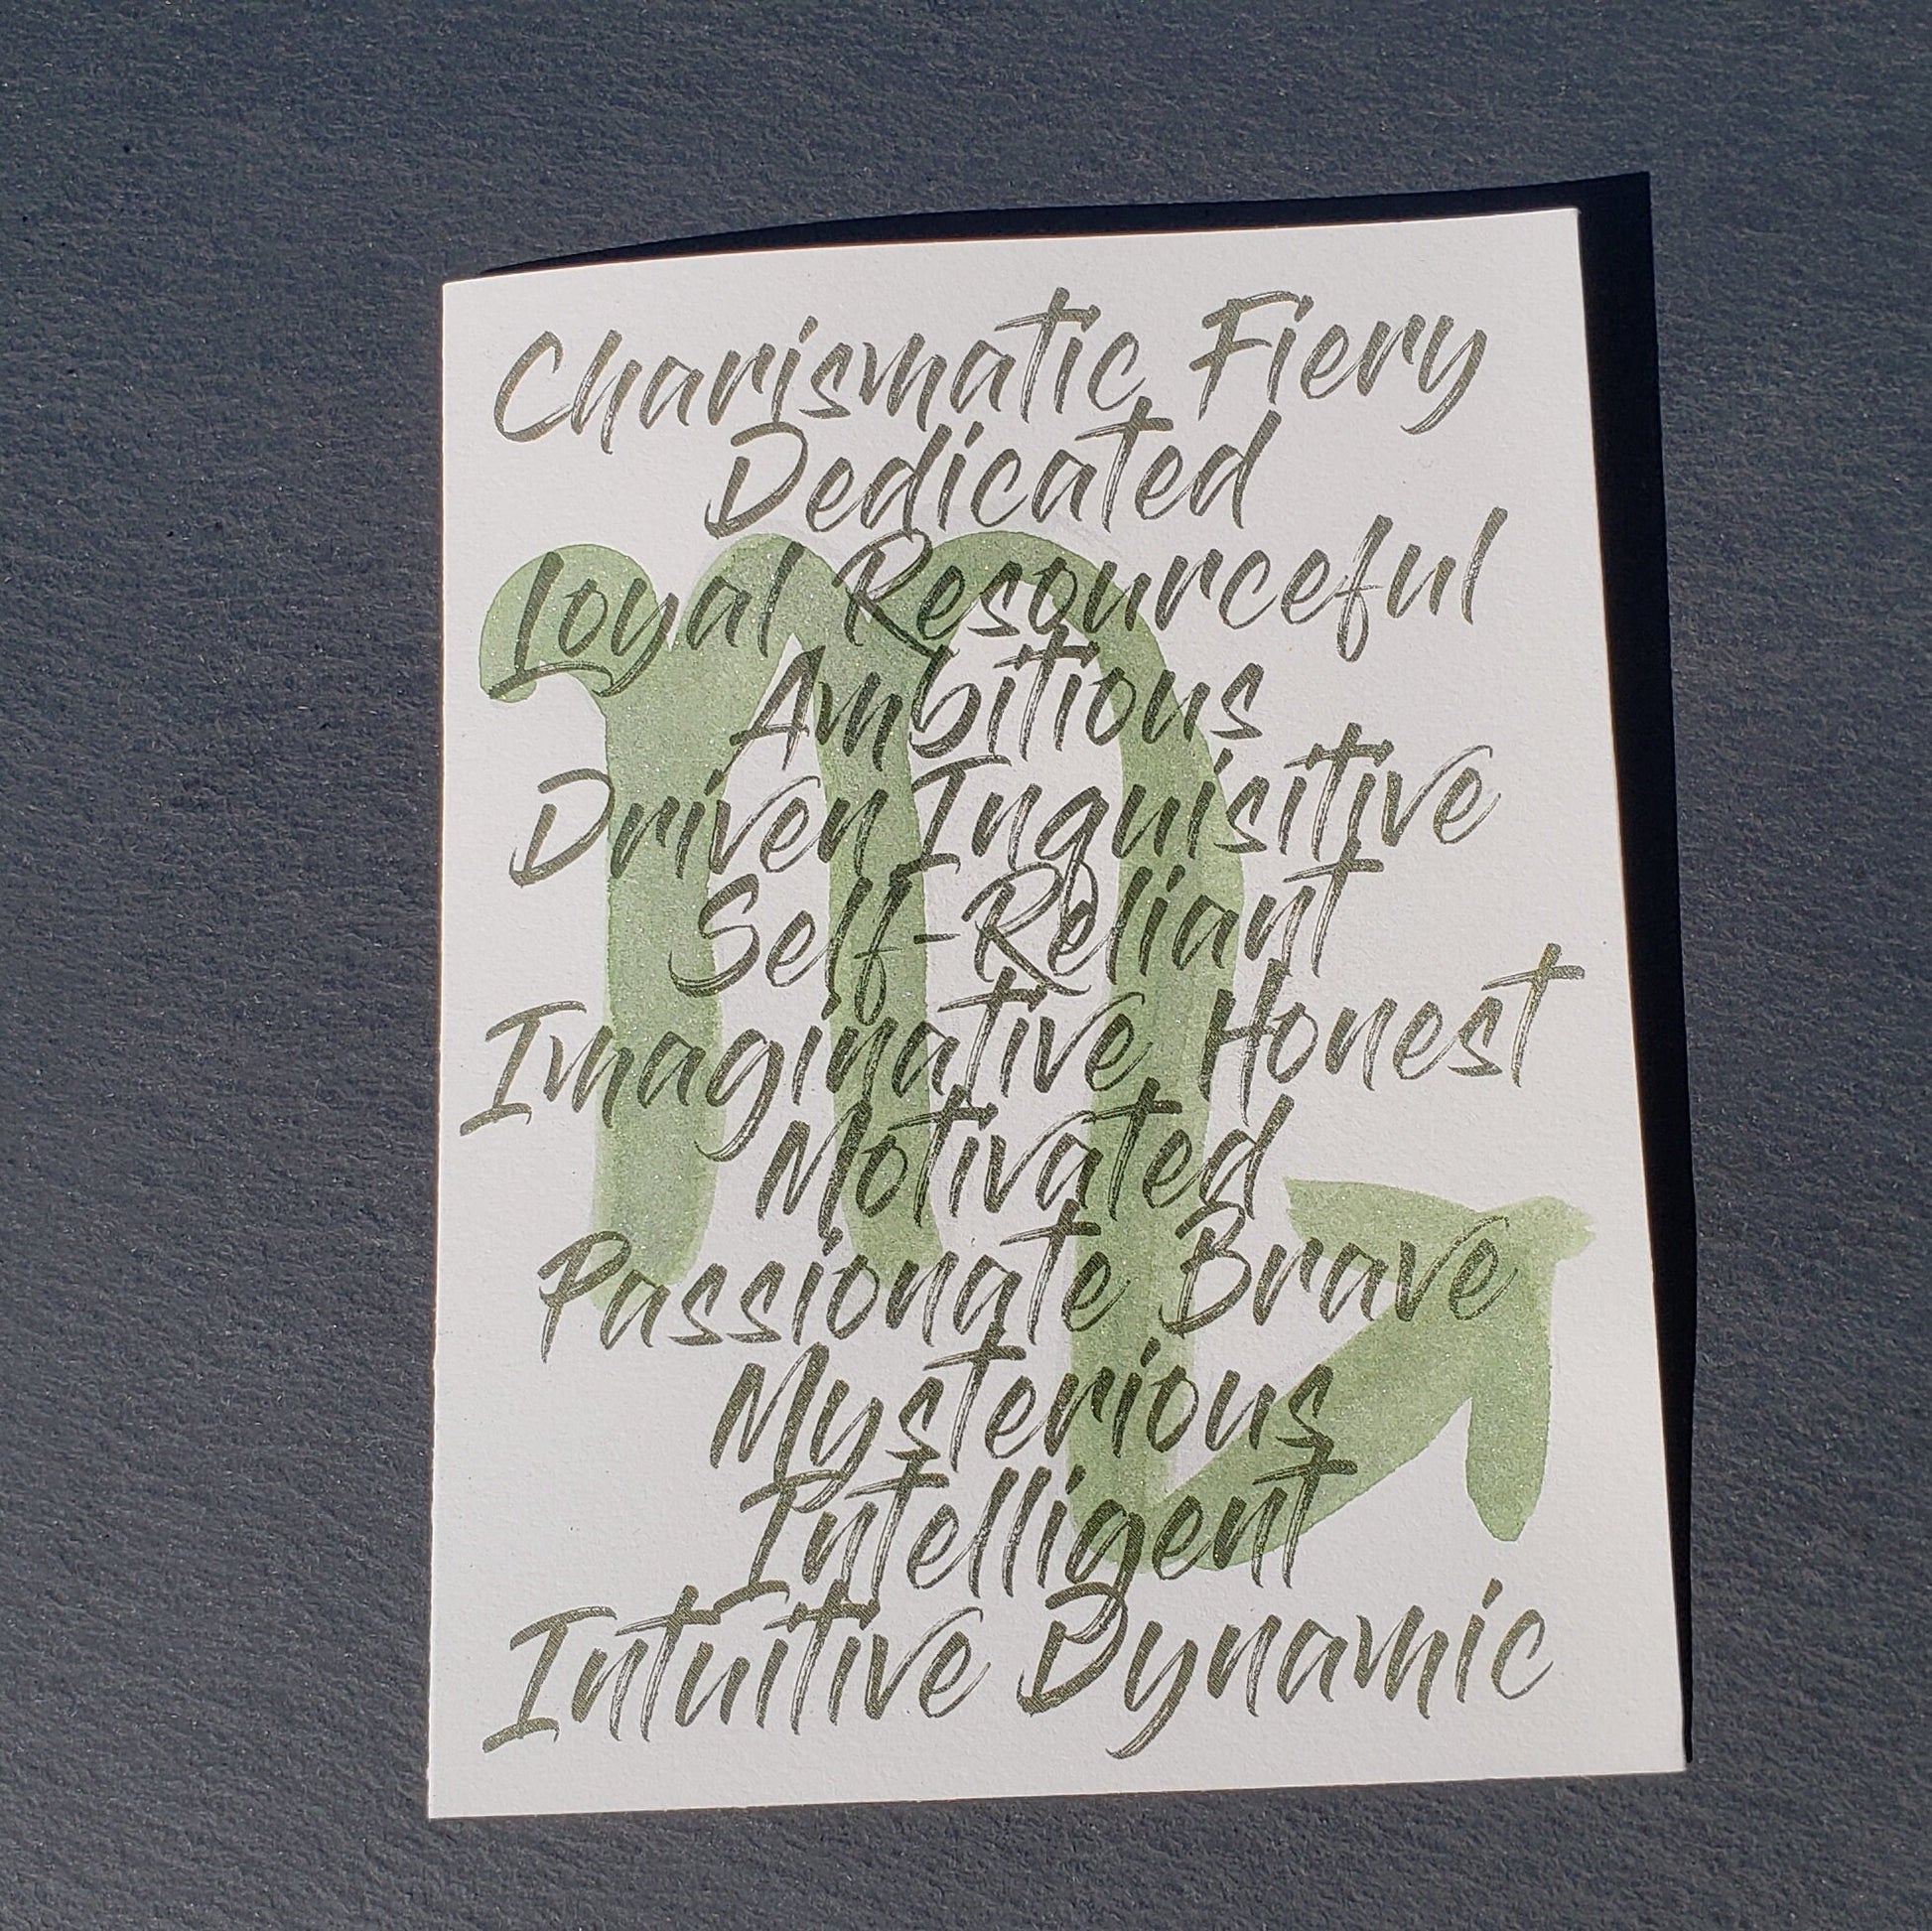 Charismatic Fiery
Dedicated
Loyal Resourceful
Ambitious
Driven Inquisitive
Self-Reliant
Imaginative Honest
Motivated
Passionate Brave
Mysterious
Intelligent
Intuitive Dynamic